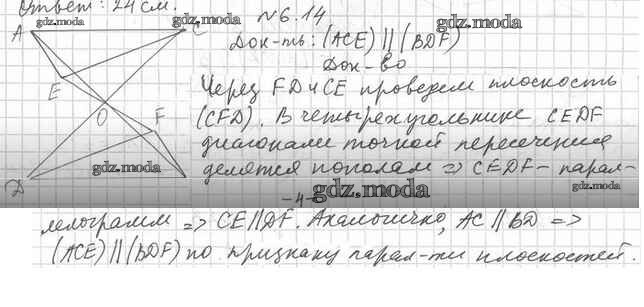 Ответ: 24 см.
№6.14
gdz.moda
gdz.moda
A
C
gdz.moda
Док-ть: (ACE) || (BDF)
Док-во
E
Через FD и CE проведем плоскость
O
F
(CFD). В четырехугольнике CEDF
диагонали точкой пересечения
gdz.moda
делятся пополам => CEDF - парал-
gdz.moda
D
-4-
gdz.moda
лелограмм => CE || DF. Аналогично, AC || BD =>
(ACE) || (BDF) по признаку парал-ти плоскостей.